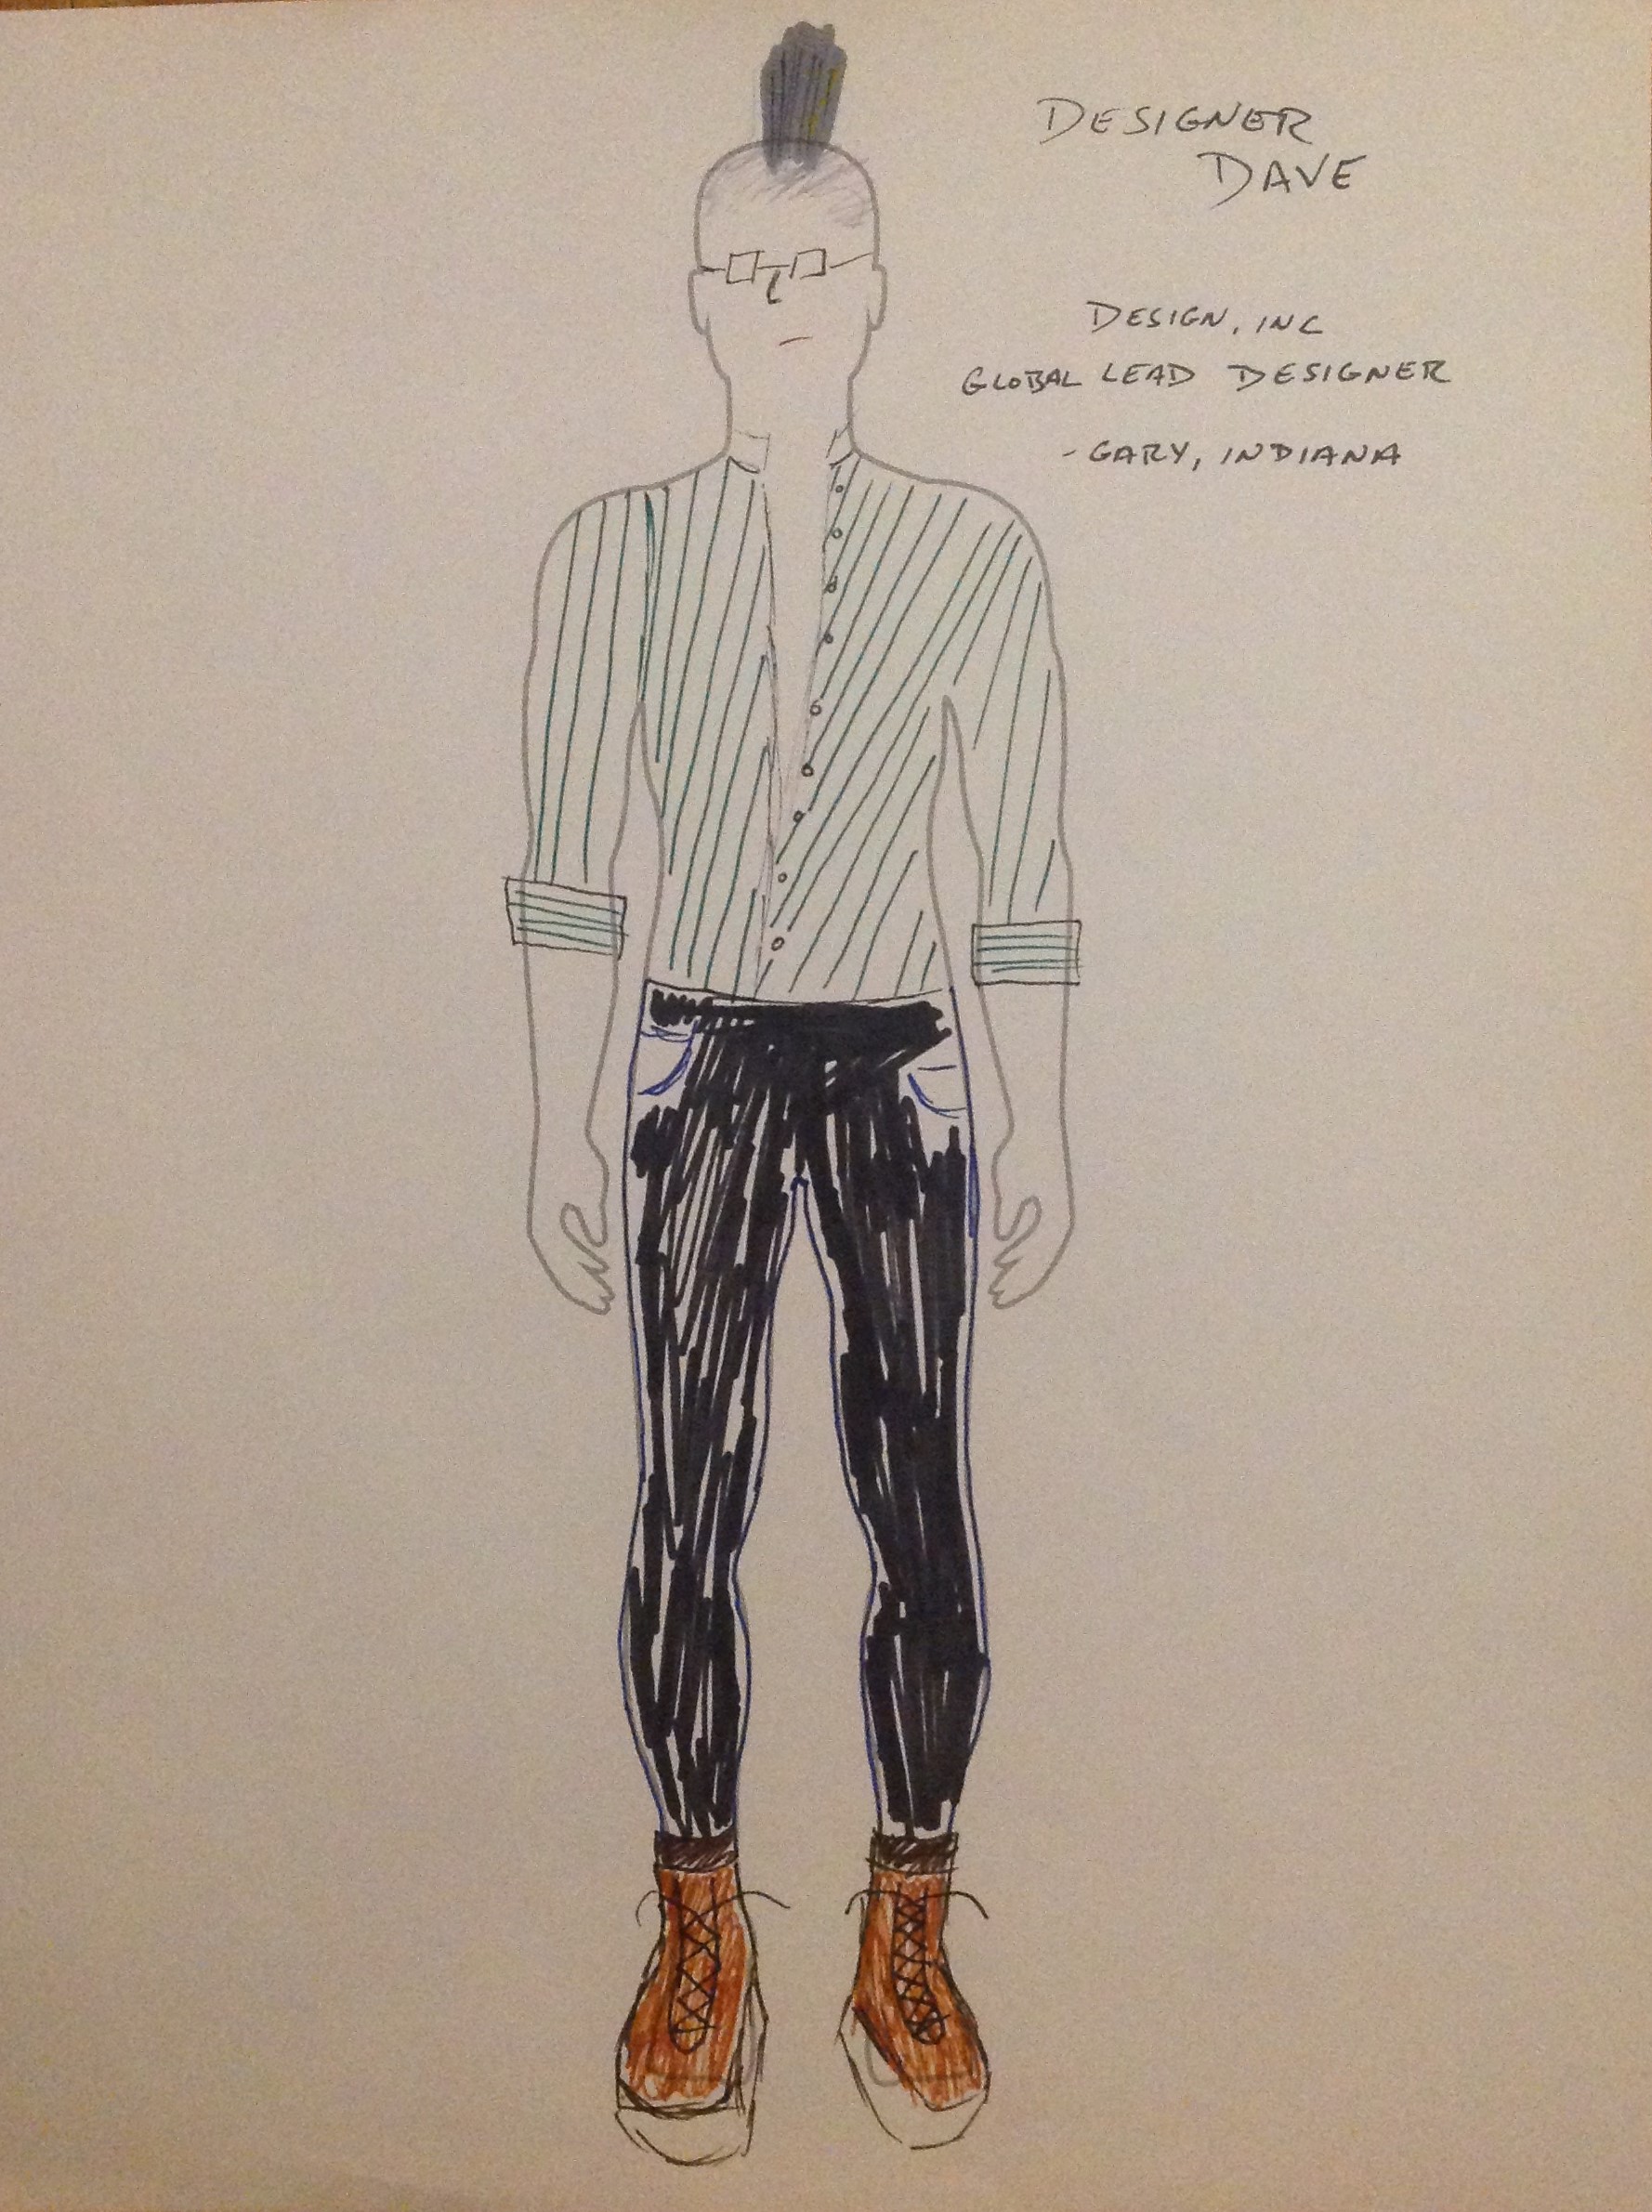 DESIGNER
DAVE
DESIGN, INC
GLOBAL LEAD DESIGNER
- GARY, INDIANA